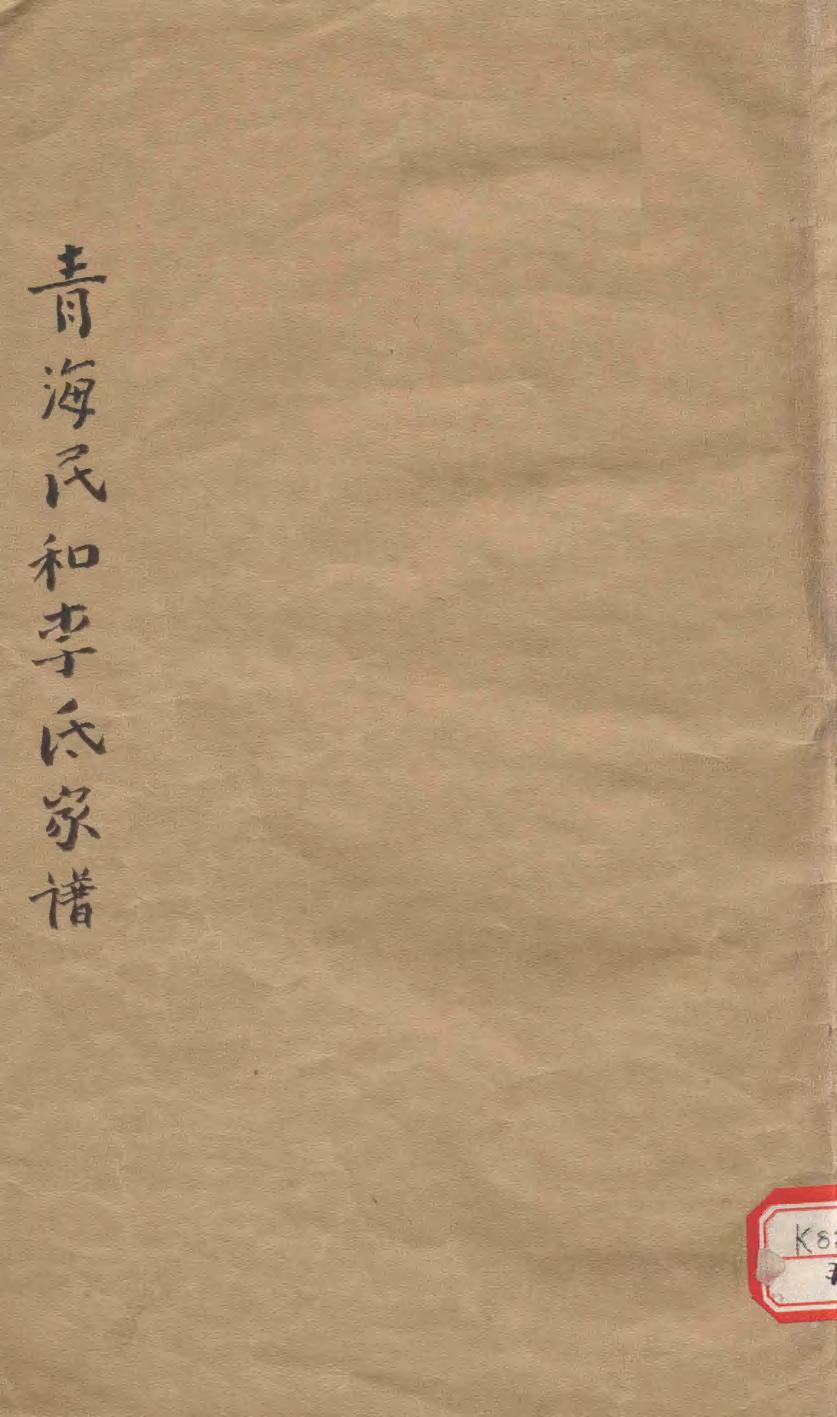 青海民和李氏家谱
K82